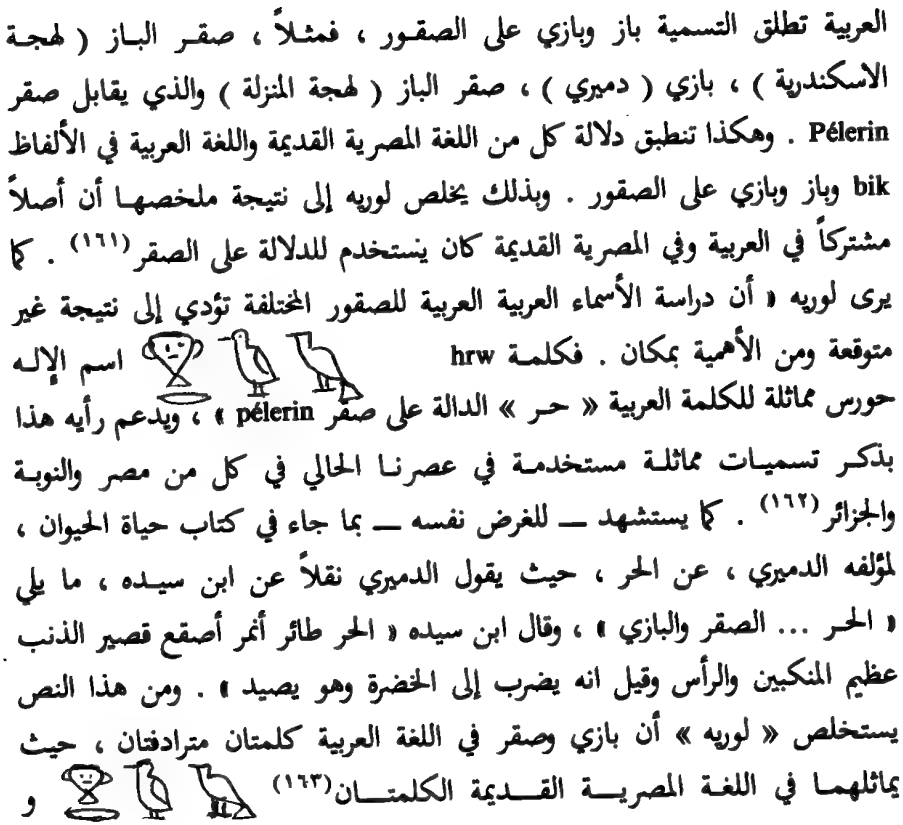 العربية تطلق التسمية باز وبازي على الصقور ، فمثلاً ، صقر الباز ( لهجة
الاسكندرية ) ، بازي ( دميري ) ، صقر الباز ( لهجة المنزلة ) والذي يقابل صقر
Pélerin . وهكذا تنطبق دلالة كل من اللغة المصرية القديمة واللغة العربية في الألفاظ
bik وباز وبازي على الصقور . وبذلك يخلص لوريه إلى نتيجة ملخصها أن أصلاً
مشتركاً في العربية وفي المصرية القديمة كان يستخدم للدلالة على الصقر (١٦١) . كما
يرى لوريه « أن دراسة الأسماء العربية العربية للصقور المختلفة تؤدي إلى نتيجة غير
متوقعة ومن الأهمية بمكان . فكلمة hrw اسم الإله
حورس مماثلة للكلمة العربية « حر » الدالة على صقر pélerin » ، ويدعم رأيه هذا
بذكر تسميات مماثلة مستخدمة في عصرنا الحالي في كل من مصر والنوبة
والجزائر (١٦٢) . كما يستشهد — للغرض نفسه — بما جاء في كتاب حياة الحيوان ،
لمؤلفه الدميري ، عن الحر ، حيث يقول الدميري نقلاً عن ابن سيده ، ما يلي
« الحر ... الصقر والبازي » ، وقال ابن سيده « الحر طائر أنمر أصقع قصير الذنب
عظيم المنكبين والرأس وقيل انه يضرب إلى الخضرة وهو يصيد » . ومن هذا النص
يستخلص « لوريه » أن بازي وصقر في اللغة العربية كلمتان مترادفتان ، حيث
يماثلهما في اللغة المصرية القديمة الكلمتان (١٦٣) و